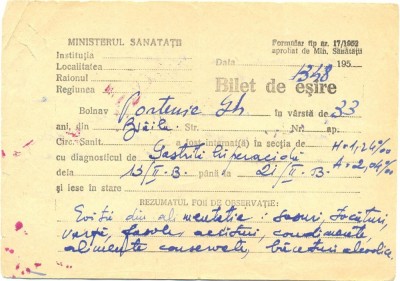 MINISTERUL SANATAȚII
Formular tip nr. 17/1952
aprobat de Min. Sănătății
Instituția
Localitatea
Data 195
Raionul
1348
Regiunea
Bilet de eșire
Bolnav Gh. în vârstă de 33
ani, din Brăila Str. Nr. ap.
Circ. Sanit. a fost internat(ă) în secția de H=1,24‰
cu diagnosticul de Gastrită hiperacidă A=2,04‰
dela 13/II-B. până la 21/II-B.
și iese în stare
REZUMATUL FOII DE OBSERVAȚIE:
Evită din alimentație: sosuri, tocături,
varză, fasole, condimente,
alimente conservate, băuturi alcoolice